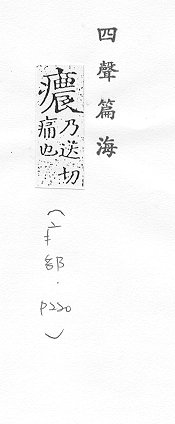 四聲篇海
癑
乃送切
痛也
(疒部.P220)